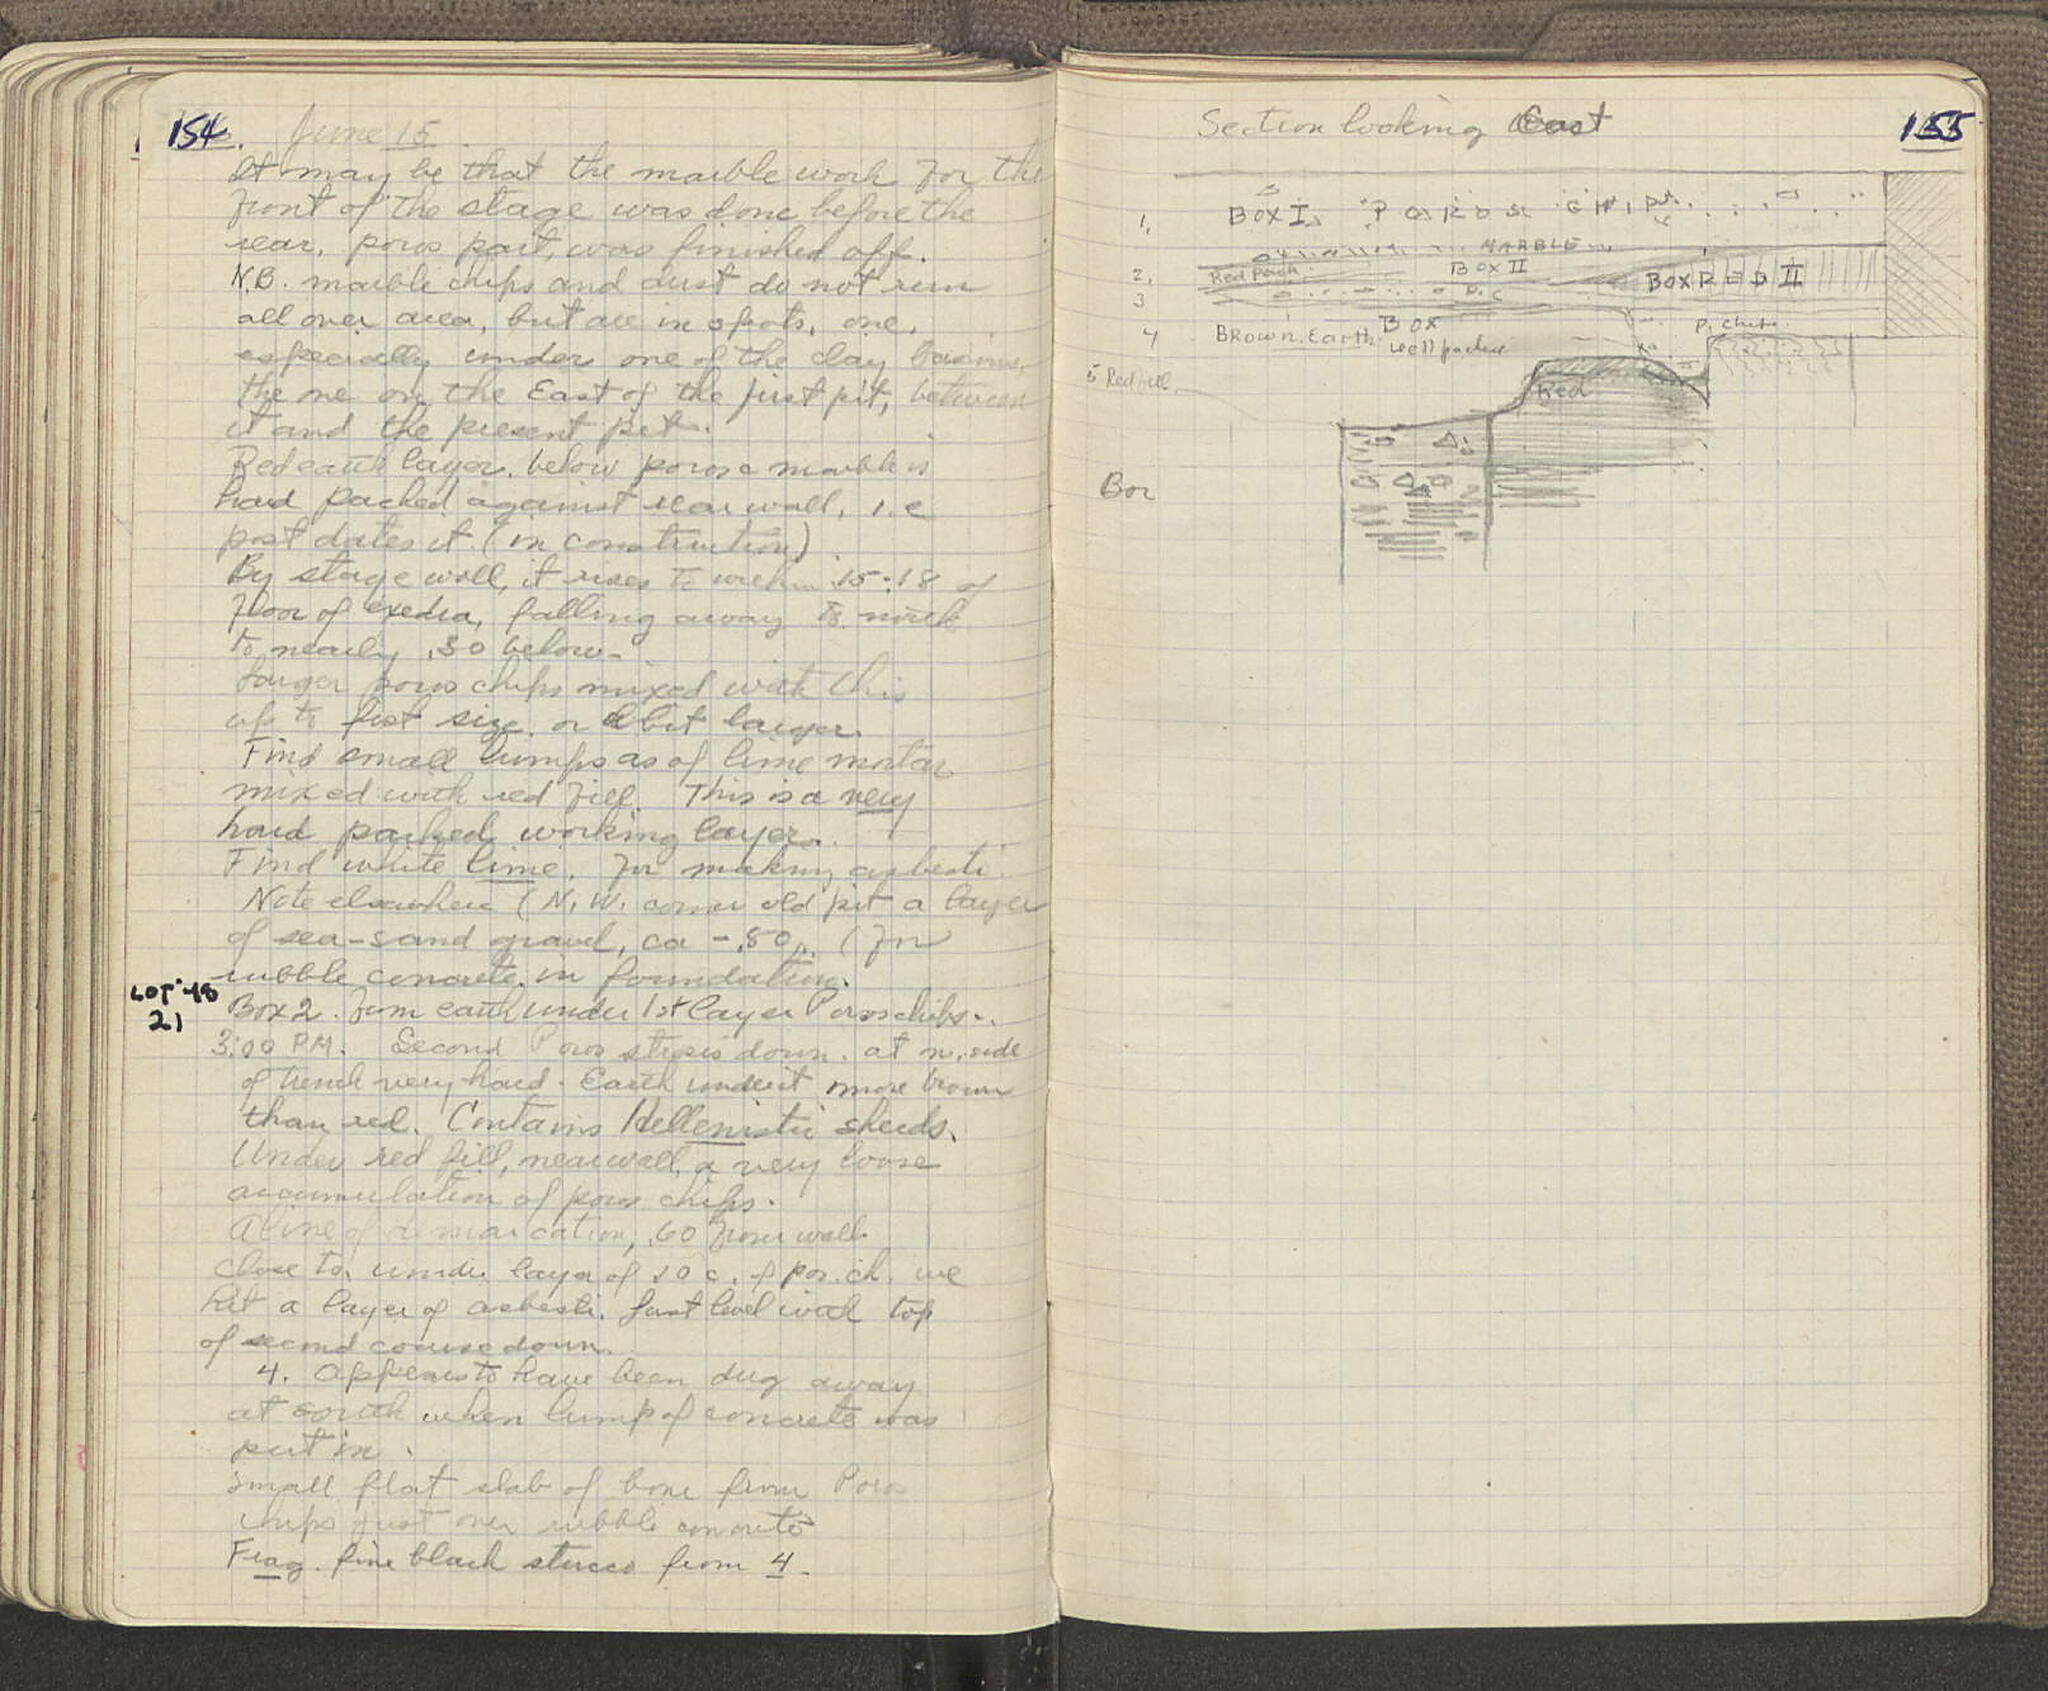 154. June 15.
It may be that the marble work for the
front of the stage was done before the
rear, poros part, was finished off.
N.B. marble chips and dust do not run
all over area, but are in spots, one,
especially under one of the clay basins,
the one on the East of the first pit, between
it and the present pit.
Red earth layer, below poros & marble is
hard packed against rear wall, i.e
post dates it (in construction).
By stage wall, it rises to within .15-.18 of
floor of exedra, falling away to north
to nearly .30 below.
Larger poros chips mixed with this
up to fist size or a bit larger.
Find small lumps as of lime mortar
mixed with red fill. This is a very
hard packed working layer.
Find white lime, for making asbesti.
Note elsewhere (N.W. corner old pit a layer
of sea-sand gravel, ca -.80, (for
rubble concrete in foundation.
LOT 48
21
Box 2. from earth under 1st layer Poros chips.
3:00 PM. Second Poros step is down. at n. side
of trench very hard. Earth under it more brown
than red. Contains Hellenistic sherds.
Under red fill, near wall, a very loose
accumulation of poros chips.
A line of demarcation, .60 from wall
Close to, under layer of 10 c. of por. ch. we
hit a layer of asbesti. Just level with top
of second course down.
4. Appears to have been dug away
at south when lump of concrete was
put in.
Small flat slab of bone from Poros
chips just over rubble concrete
Frag. fine black stucco from 4.
Section looking East
155
1, BOX I POROS CHIPS
MARBLE
2. Red Pack BOX II BOX RED II
3 P. C
4 Brown Earth BOX well packed P. chips
5 Red fill Red
Box